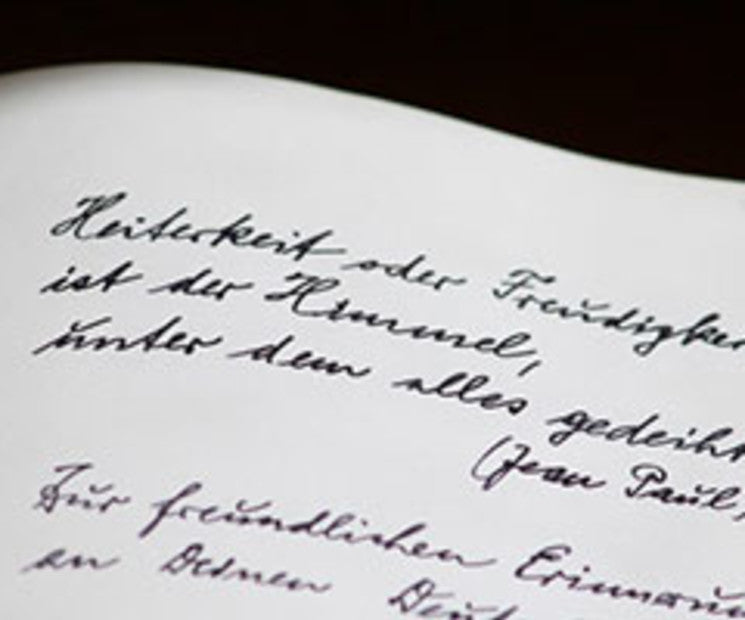 Heiterkeit oder Freudigkei
ist der Himmel,
unter dem alles gedeiht
(Jean Paul,
Zur freundlichen Erinnerun
an Deinen Deut